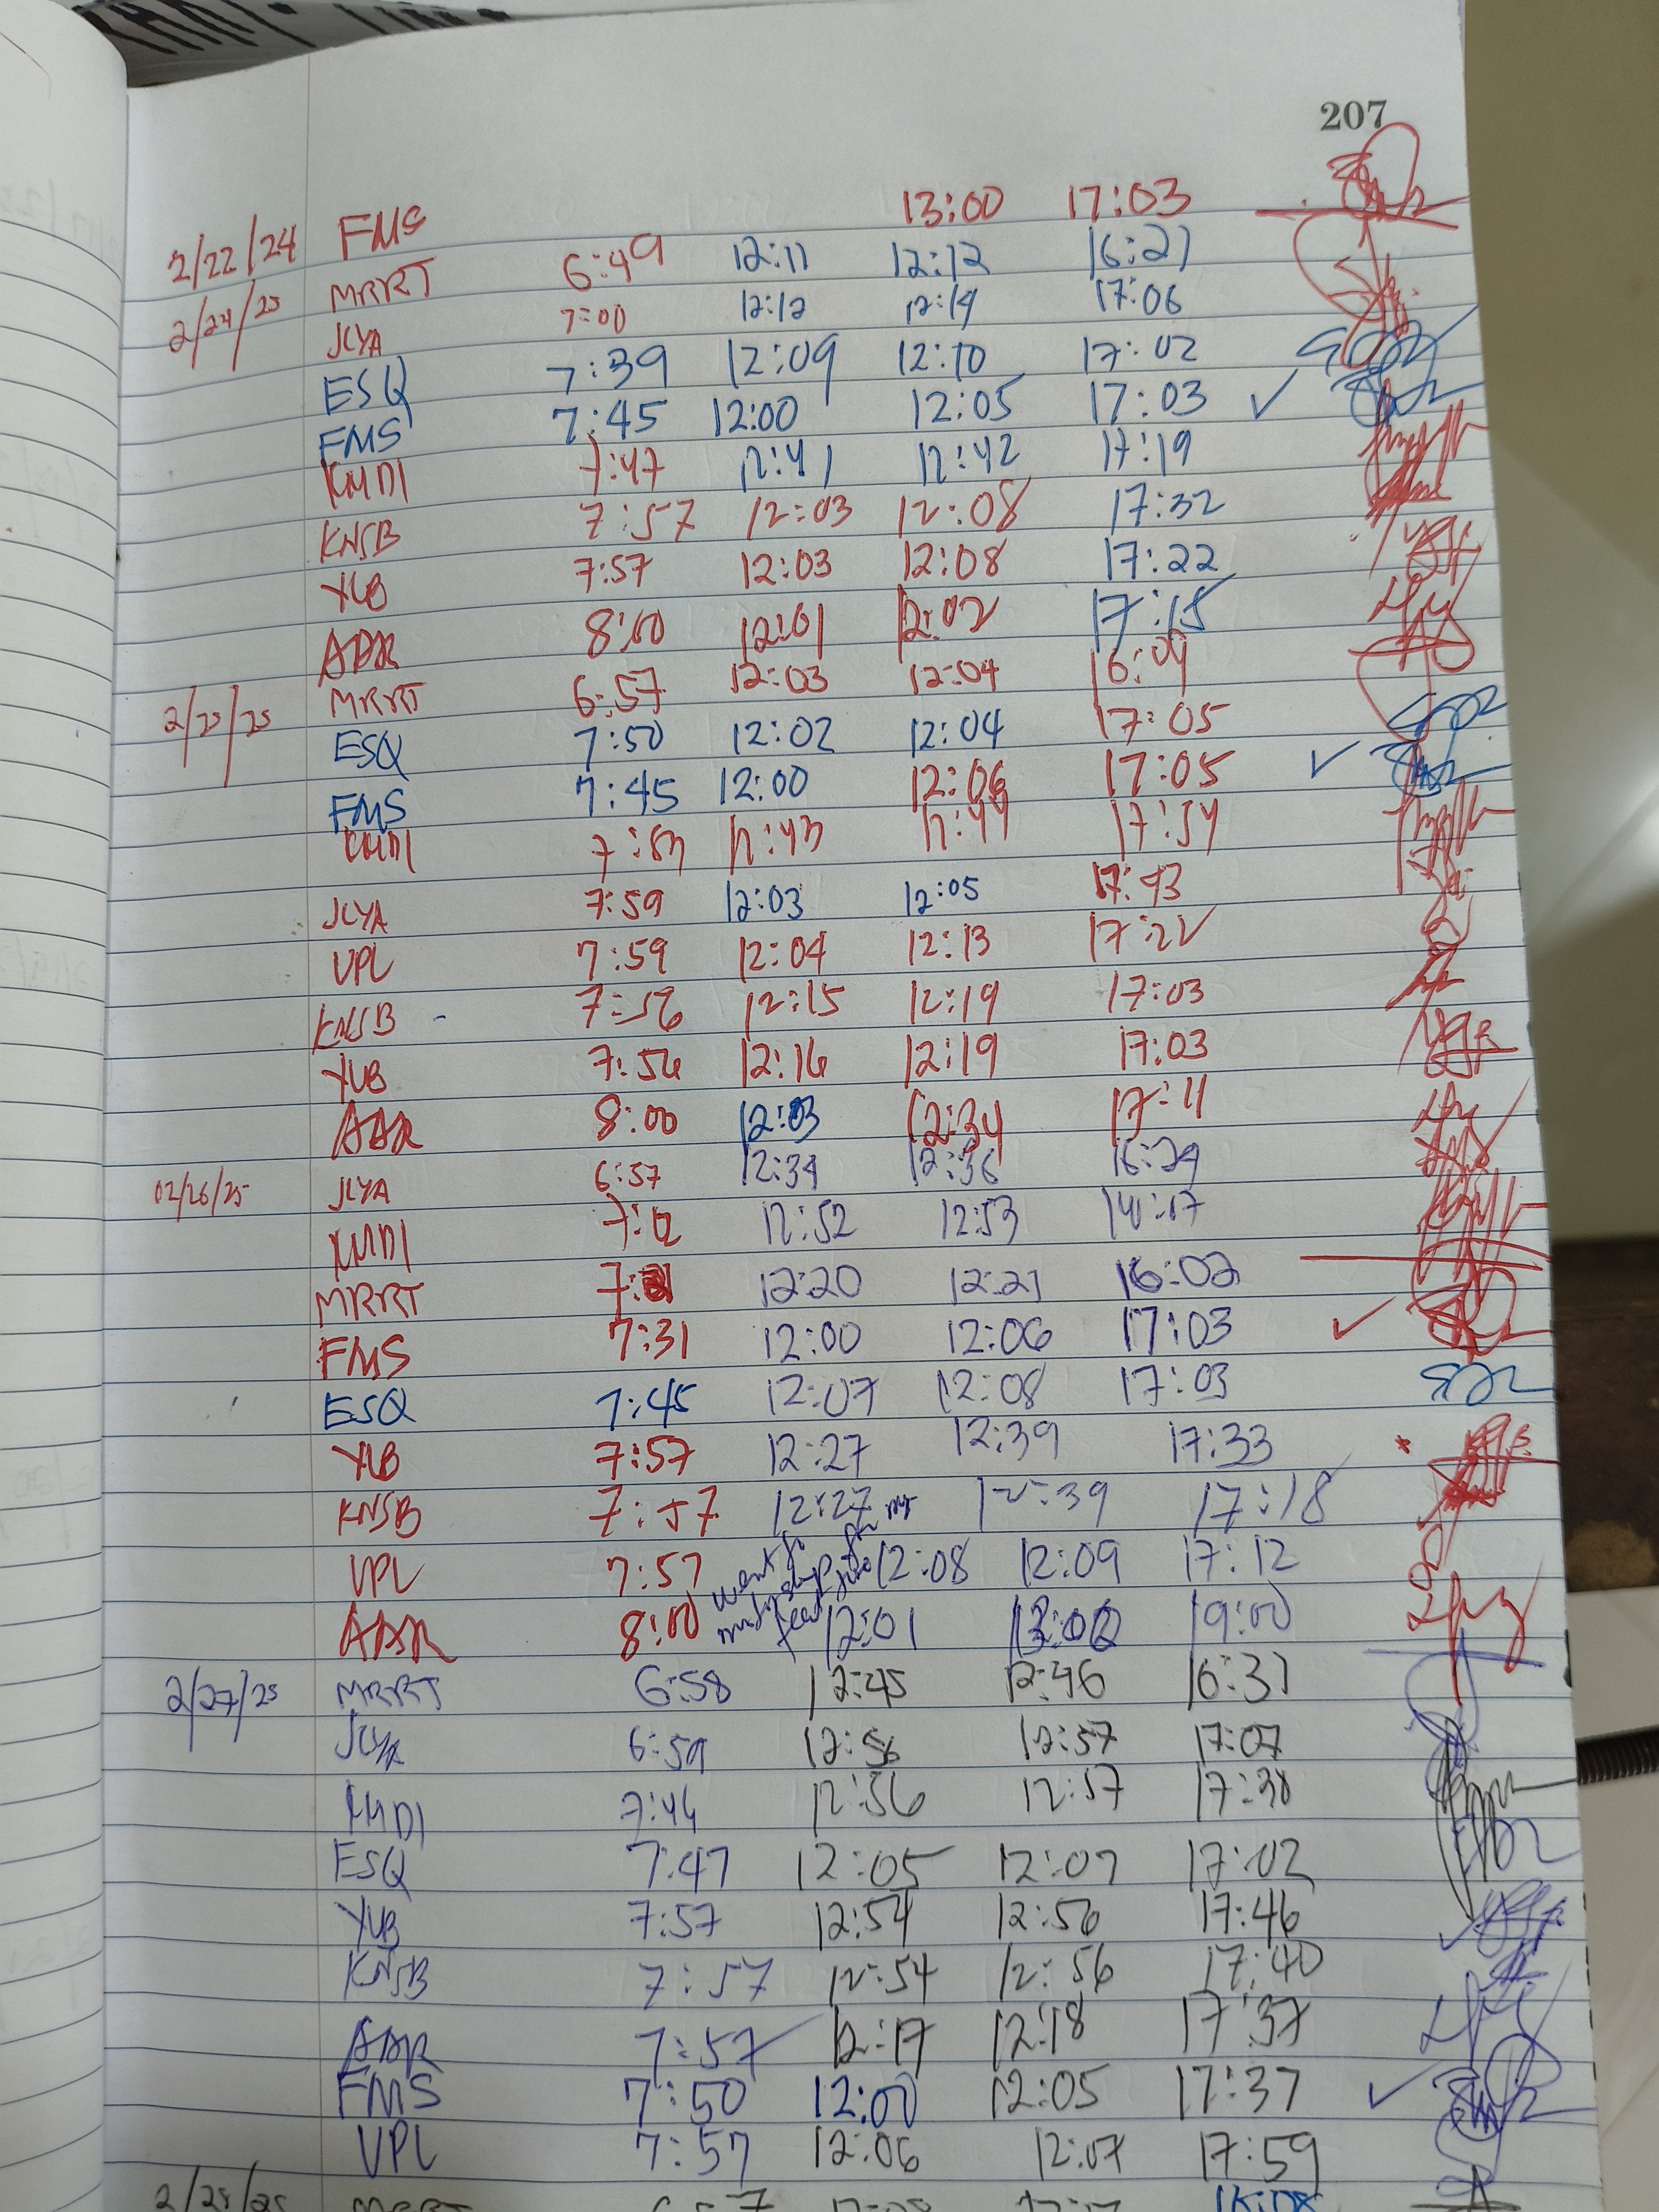 207
2/22/24 FMS 13:00 17:03
2/24/25 MRRT 6:49 12:11 12:12 16:21
JCYA 7:00 12:12 12:14 17:06
ESQ 7:39 12:09 12:10 17:02
FMS 7:45 12:00 12:05 17:03 ✓
KMDI 7:47 12:41 12:42 17:19
KNSB 7:57 12:03 12:08 17:32
YUB 7:57 12:03 12:08 17:22
AAR 8:00 12:01 12:02 17:15
2/25/25 MRRT 6:57 12:03 12:04 16:09
ESQ 7:50 12:02 12:04 17:05
FMS 7:45 12:00 12:06 17:05 ✓
KMDI 7:53 12:43 12:44 17:54
JCYA 7:59 12:03 12:05 17:43
VPL 7:59 12:04 12:13 17:22
KNSB 7:56 12:15 12:19 17:03
YUB 7:56 12:16 12:19 17:03
AAR 8:00 12:03 12:34 17:11
02/26/25 JCYA 6:57 12:34 12:36 16:29
KMDI 7:12 12:52 12:53
MRRT 12:20 12:21 16:02
FMS 7:31 12:00 12:06 17:03 ✓
ESQ 7:45 12:07 12:08 17:03
YUB 7:57 12:27 12:39 17:33
KNSB 7:57 12:27 12:39 17:18
VPL 7:57 went to 12:08 12:09 17:12
AAR 8:00 12:01 19:00
2/27/25 MRRT 6:58 12:45 12:46 16:31
JCYA 6:59 12:56 12:57 17:07
KMDI 7:46 12:56 12:57 17:38
ESQ 7:47 12:05 12:07 17:02
YUB 7:57 12:54 12:56 17:46
KNSB 7:57 12:54 12:56 17:40
AAR 7:57 12:17 12:18 17:37
FMS 7:50 12:00 12:05 17:37 ✓
VPL 7:57 12:06 12:07 17:59
2/28/25 MRRT 6:57